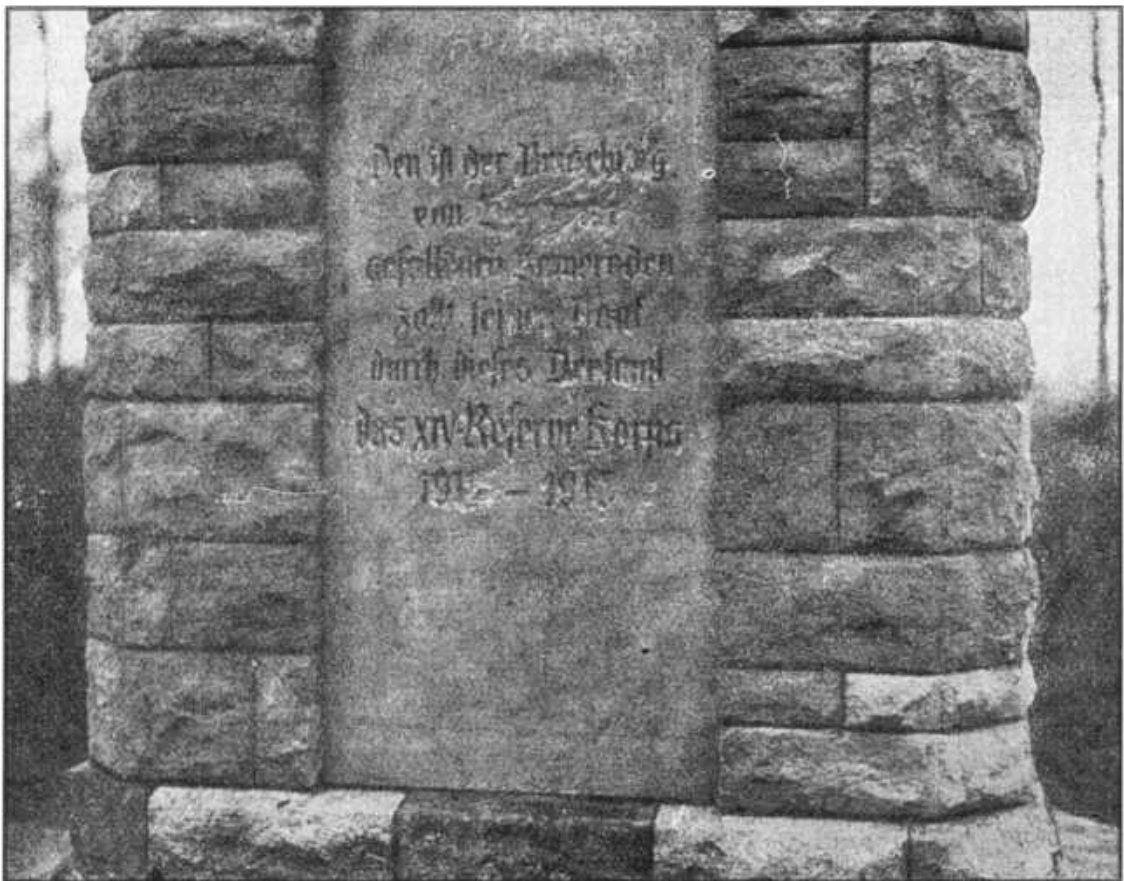 Den in der
von
gefallenen Kameraden
zollt seinen Dank
durch dieses Denkmal
das XIV. Reserve Korps